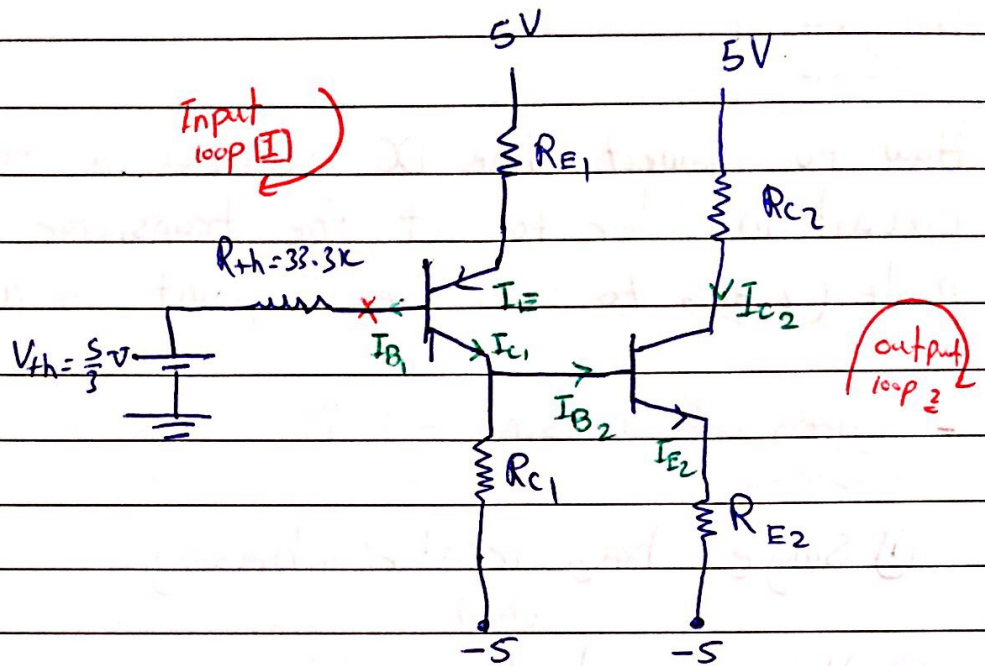 5V
5V
Input
loop I
R_E1
R_C2
R+h=33.3K
I_E
I_C2
X
I_B1
I_C1
V+h=5/3 v
output
loop 2
I_B2
I_E2
R_C1
R_E2
-5
-5